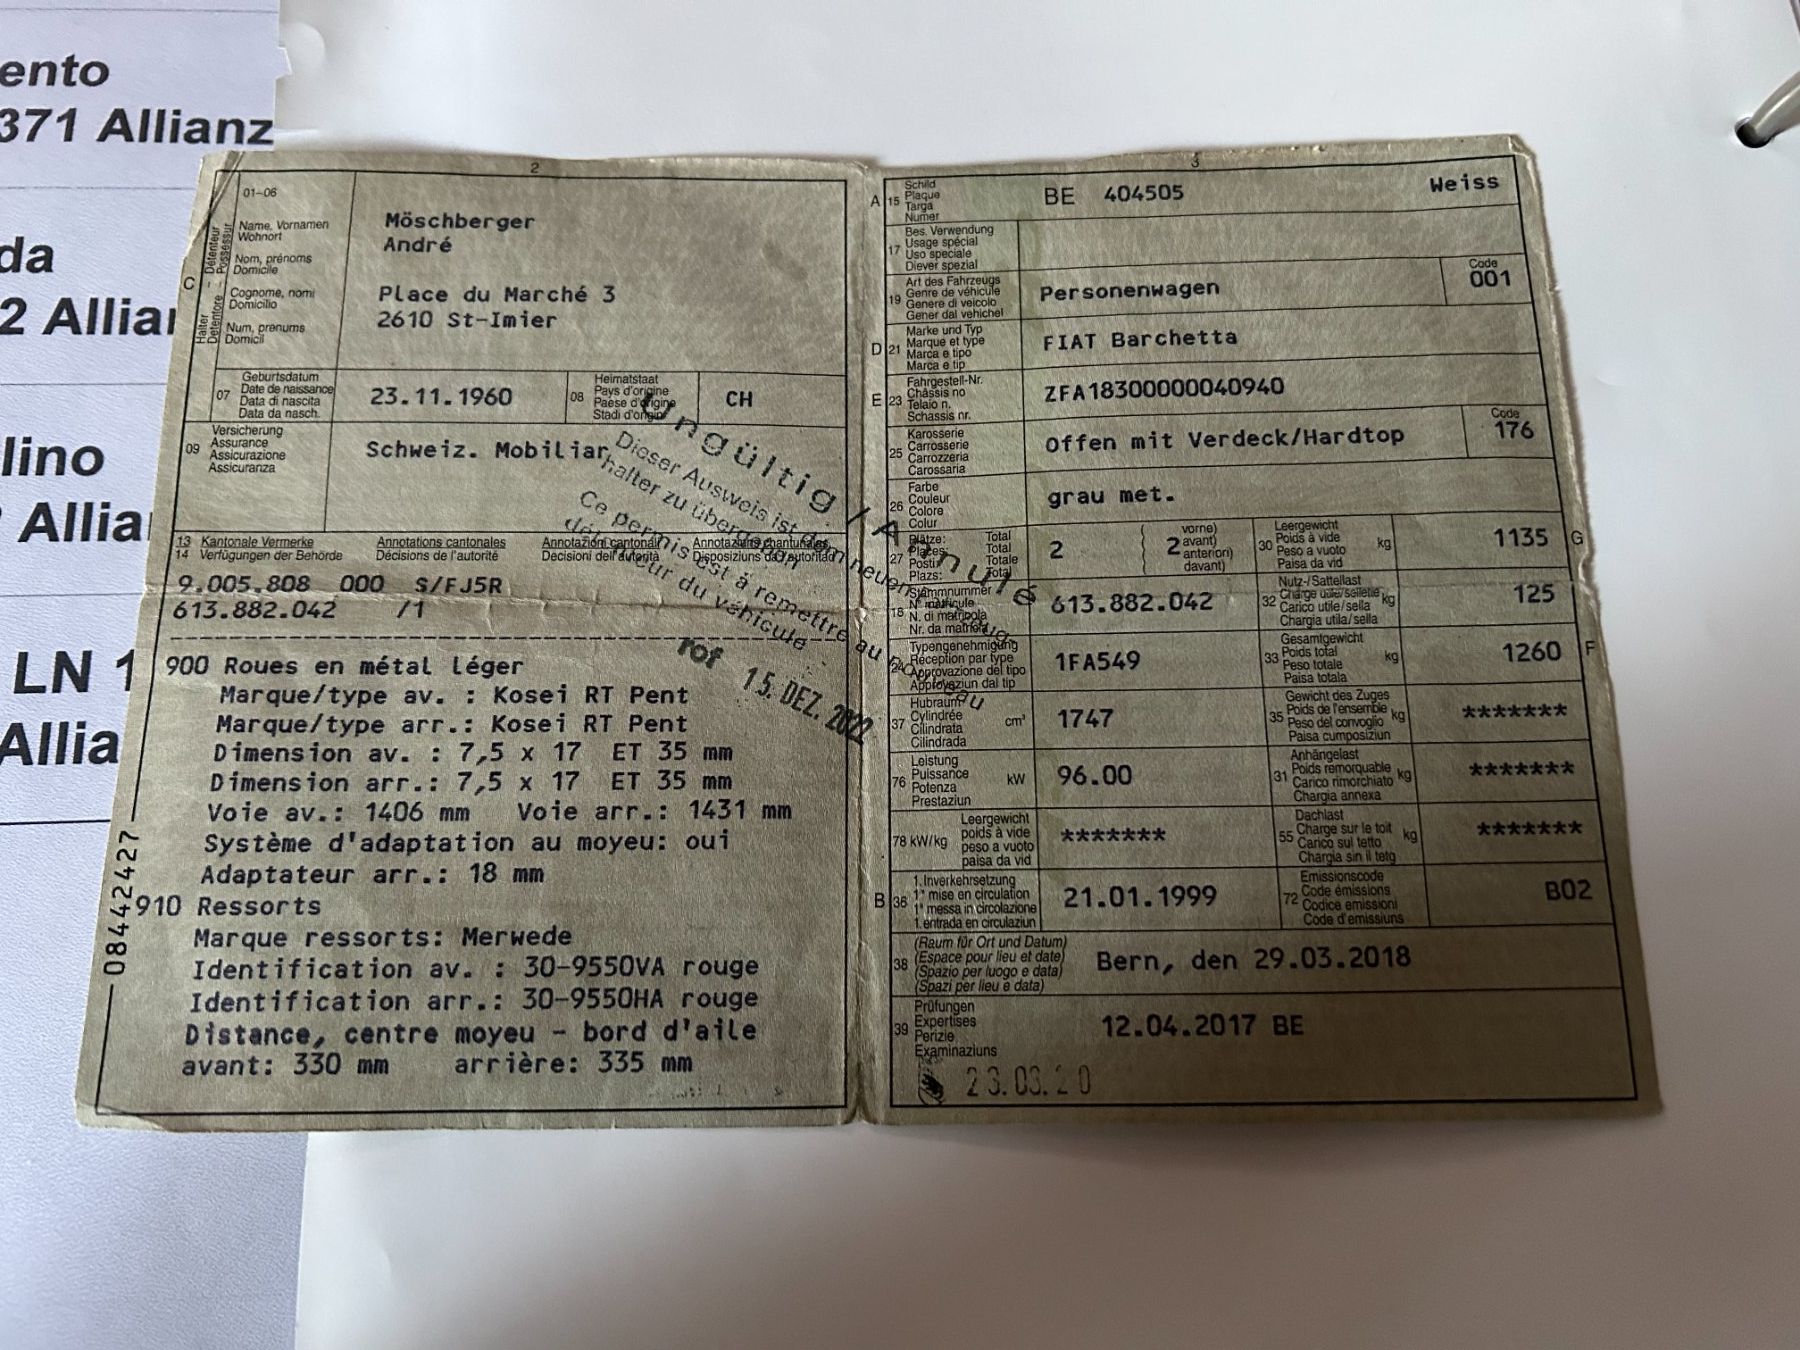 ento
371 Allianz
da
2 Allia
lino
Allia
LN 1
Allia
2
01–06
Halter – Détenteur
Detentore – Possessur
C
Name, Vornamen
Wohnort
Nom, prénoms
Domicile
Cognome, nomi
Domicilio
Num, prenums
Domicil
Möschberger
André
Place du Marché 3
2610 St-Imier
07
Geburtsdatum
Date de naissance
Data di nascita
Data da nasch.
23.11.1960
08
Heimatstaat
Pays d'origine
Paese d'origine
Stadi d'origin
CH
09
Versicherung
Assurance
Assicurazione
Assicuranza
Schweiz. Mobiliar
13 Kantonale Vermerke Annotations cantonales Annotazioni cantonali Annotaziuns chantunalas
14 Verfügungen der Behörde Décisions de l'autorité Decisioni dell'autorità Disposiziuns da l'autoritad
9.005.808 000 S/FJ5R
613.882.042 /1
900 Roues en métal léger
Marque/type av. : Kosei RT Pent
Marque/type arr.: Kosei RT Pent
Dimension av. : 7,5 x 17 ET 35 mm
Dimension arr.: 7,5 x 17 ET 35 mm
Voie av.: 1406 mm Voie arr.: 1431 mm
Système d'adaptation au moyeu: oui
Adaptateur arr.: 18 mm
910 Ressorts
Marque ressorts: Merwede
Identification av. : 30-9550VA rouge
Identification arr.: 30-9550HA rouge
Distance, centre moyeu – bord d'aile
avant: 330 mm arrière: 335 mm
08442427
Ungültig / Annulé
Dieser Ausweis ist dem neuen
halter zu übergeben
Ce permis est à remettre au nouveau
détenteur du véhicule
rof 15. DEZ. 2022
3
A 15
Schild
Plaque
Targa
Numer
BE 404505 Weiss
17
Bes. Verwendung
Usage spécial
Uso speciale
Diever spezial
19
Art des Fahrzeugs
Genre de véhicule
Genere di veicolo
Gener dal vehichel
Personenwagen
Code
001
D 21
Marke und Typ
Marque et type
Marca e tipo
Marca e tip
FIAT Barchetta
E 23
Fahrgestell-Nr.
Châssis no
Telaio n.
Schassis nr.
ZFA18300000040940
25
Karosserie
Carrosserie
Carrozzeria
Carossaria
Offen mit Verdeck/Hardtop
Code
176
26
Farbe
Couleur
Colore
Colur
grau met.
27
Plätze: Total
Places: Total
Posti: Totale
Plazs: Total
2
2
vorne)
avant)
anteriori)
davant)
30
Leergewicht
Poids à vide
Peso a vuoto
Paisa da vid
kg
1135
G
18
Stammnummer
N° matricule
N. di matricola
Nr. da matricla
613.882.042
32
Nutz-/Sattellast
Charge utile/sellette
Carico utile/sella
Chargia utila/sella
kg
125
24
Typengenehmigung
Réception par type
Approvazione del tipo
Approvaziun dal tip
1FA549
33
Gesamtgewicht
Poids total
Peso totale
Paisa totala
kg
1260
F
37
Hubraum
Cylindrée
Cilindrata
Cilindrada
cm³
1747
35
Gewicht des Zuges
Poids de l'ensemble
Peso del convoglio
Paisa cumposiziun
kg
*******
76
Leistung
Puissance
Potenza
Prestaziun
kW
96.00
31
Anhängelast
Poids remorquable
Carico rimorchiato
Chargia annexa
kg
*******
78 kW/kg
Leergewicht
poids à vide
peso a vuoto
paisa da vid
*******
55
Dachlast
Charge sur le toit
Carico sul tetto
Chargia sin il tetg
kg
*******
B 36
1. Inverkehrsetzung
1re mise en circulation
1a messa in circolazione
1. entrada en circulaziun
21.01.1999
72
Emissionscode
Code émissions
Codice emissioni
Code d'emissiuns
B02
38
(Raum für Ort und Datum)
(Espace pour lieu et date)
(Spazio per luogo e data)
(Spazi per lieu e data)
Bern, den 29.03.2018
39
Prüfungen
Expertises
Perizie
Examinaziuns
12.04.2017 BE
23.03.20